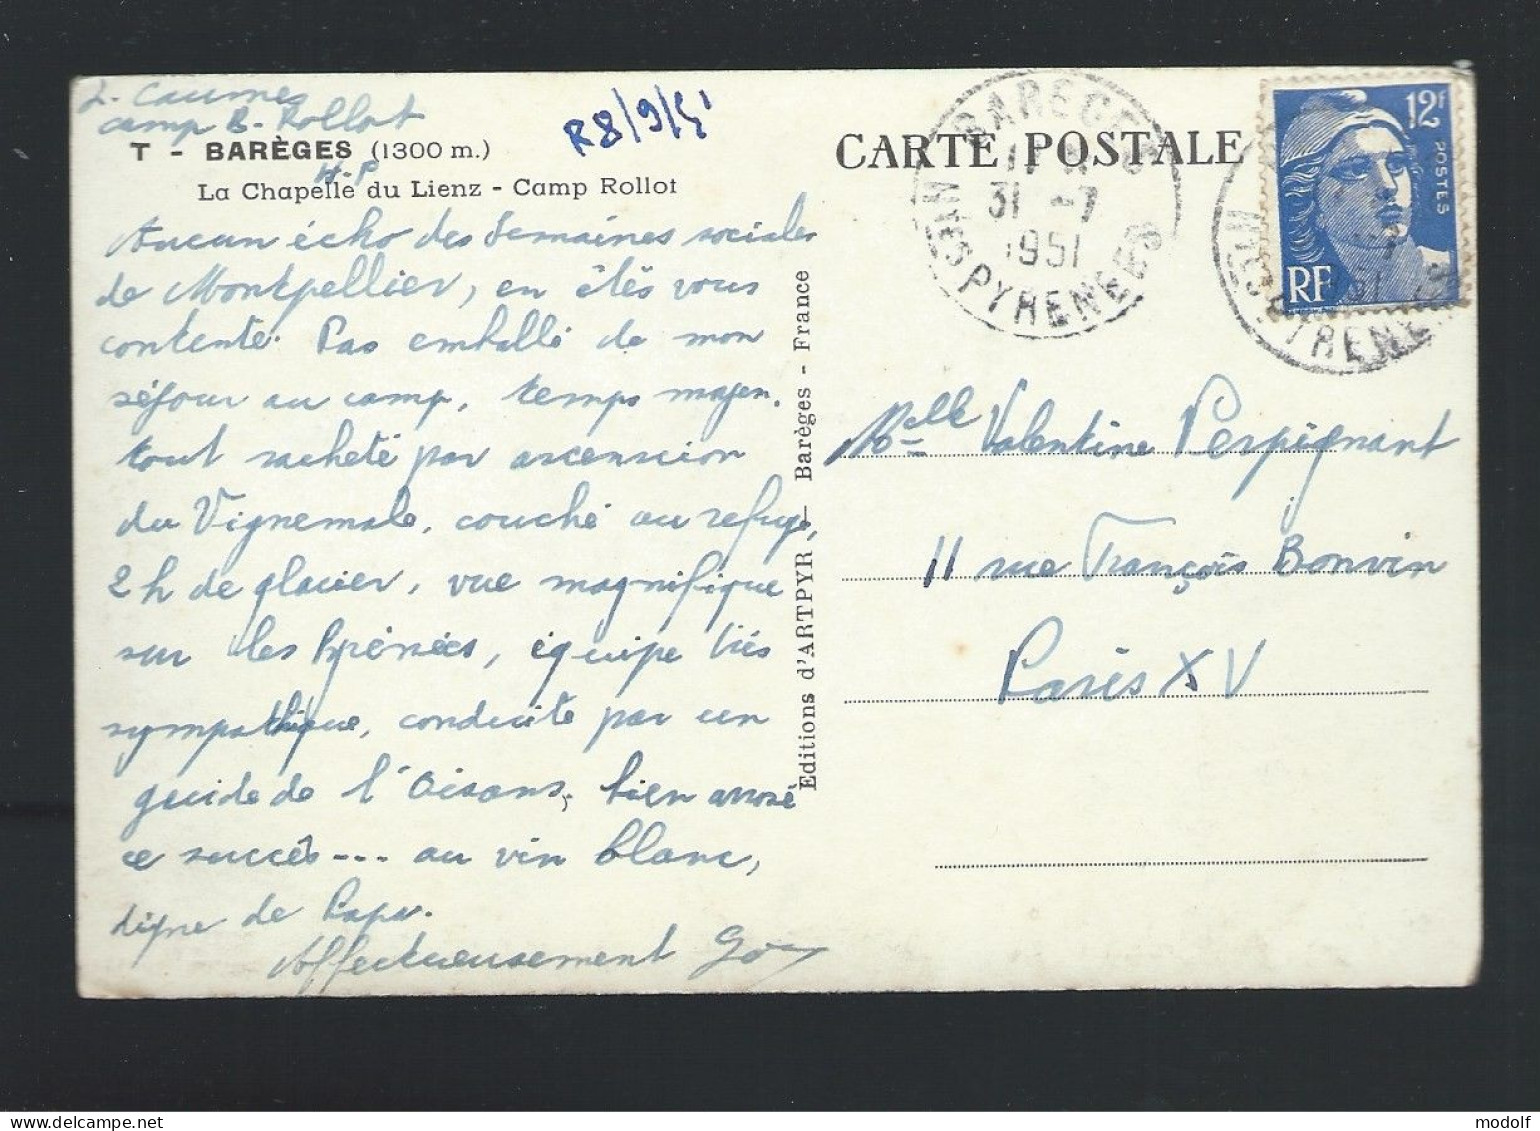 Caumes
camp B. Rollot
T - BARÈGES (1300 m.)
H.P
La Chapelle du Lienz - Camp Rollot
R 8/9/51
Aucun écho des Semaines sociales
de Montpellier, en êtes vous
contente. Pas emballé de mon
séjour au camp, temps moyen.
tout racheté par ascension
du Vignemale, couché au refuge,
2 h de glacier, vue magnifique
sur les Pyrénées, équipe très
sympathique, conduite par un
guide de l'Oisans, bien arrosé
ce succès --- au vin blanc,
digne de Papa.
Affectueusement
Editions d'ARTPYR — Barèges - France
CARTE POSTALE
BARÈGES
31 -7
1951
HTES PYRENEES
12F
POSTES
RF
HTES PYRENEES
Melle Valentine Perpignant
11 rue François Bonvin
Paris XV
modolf